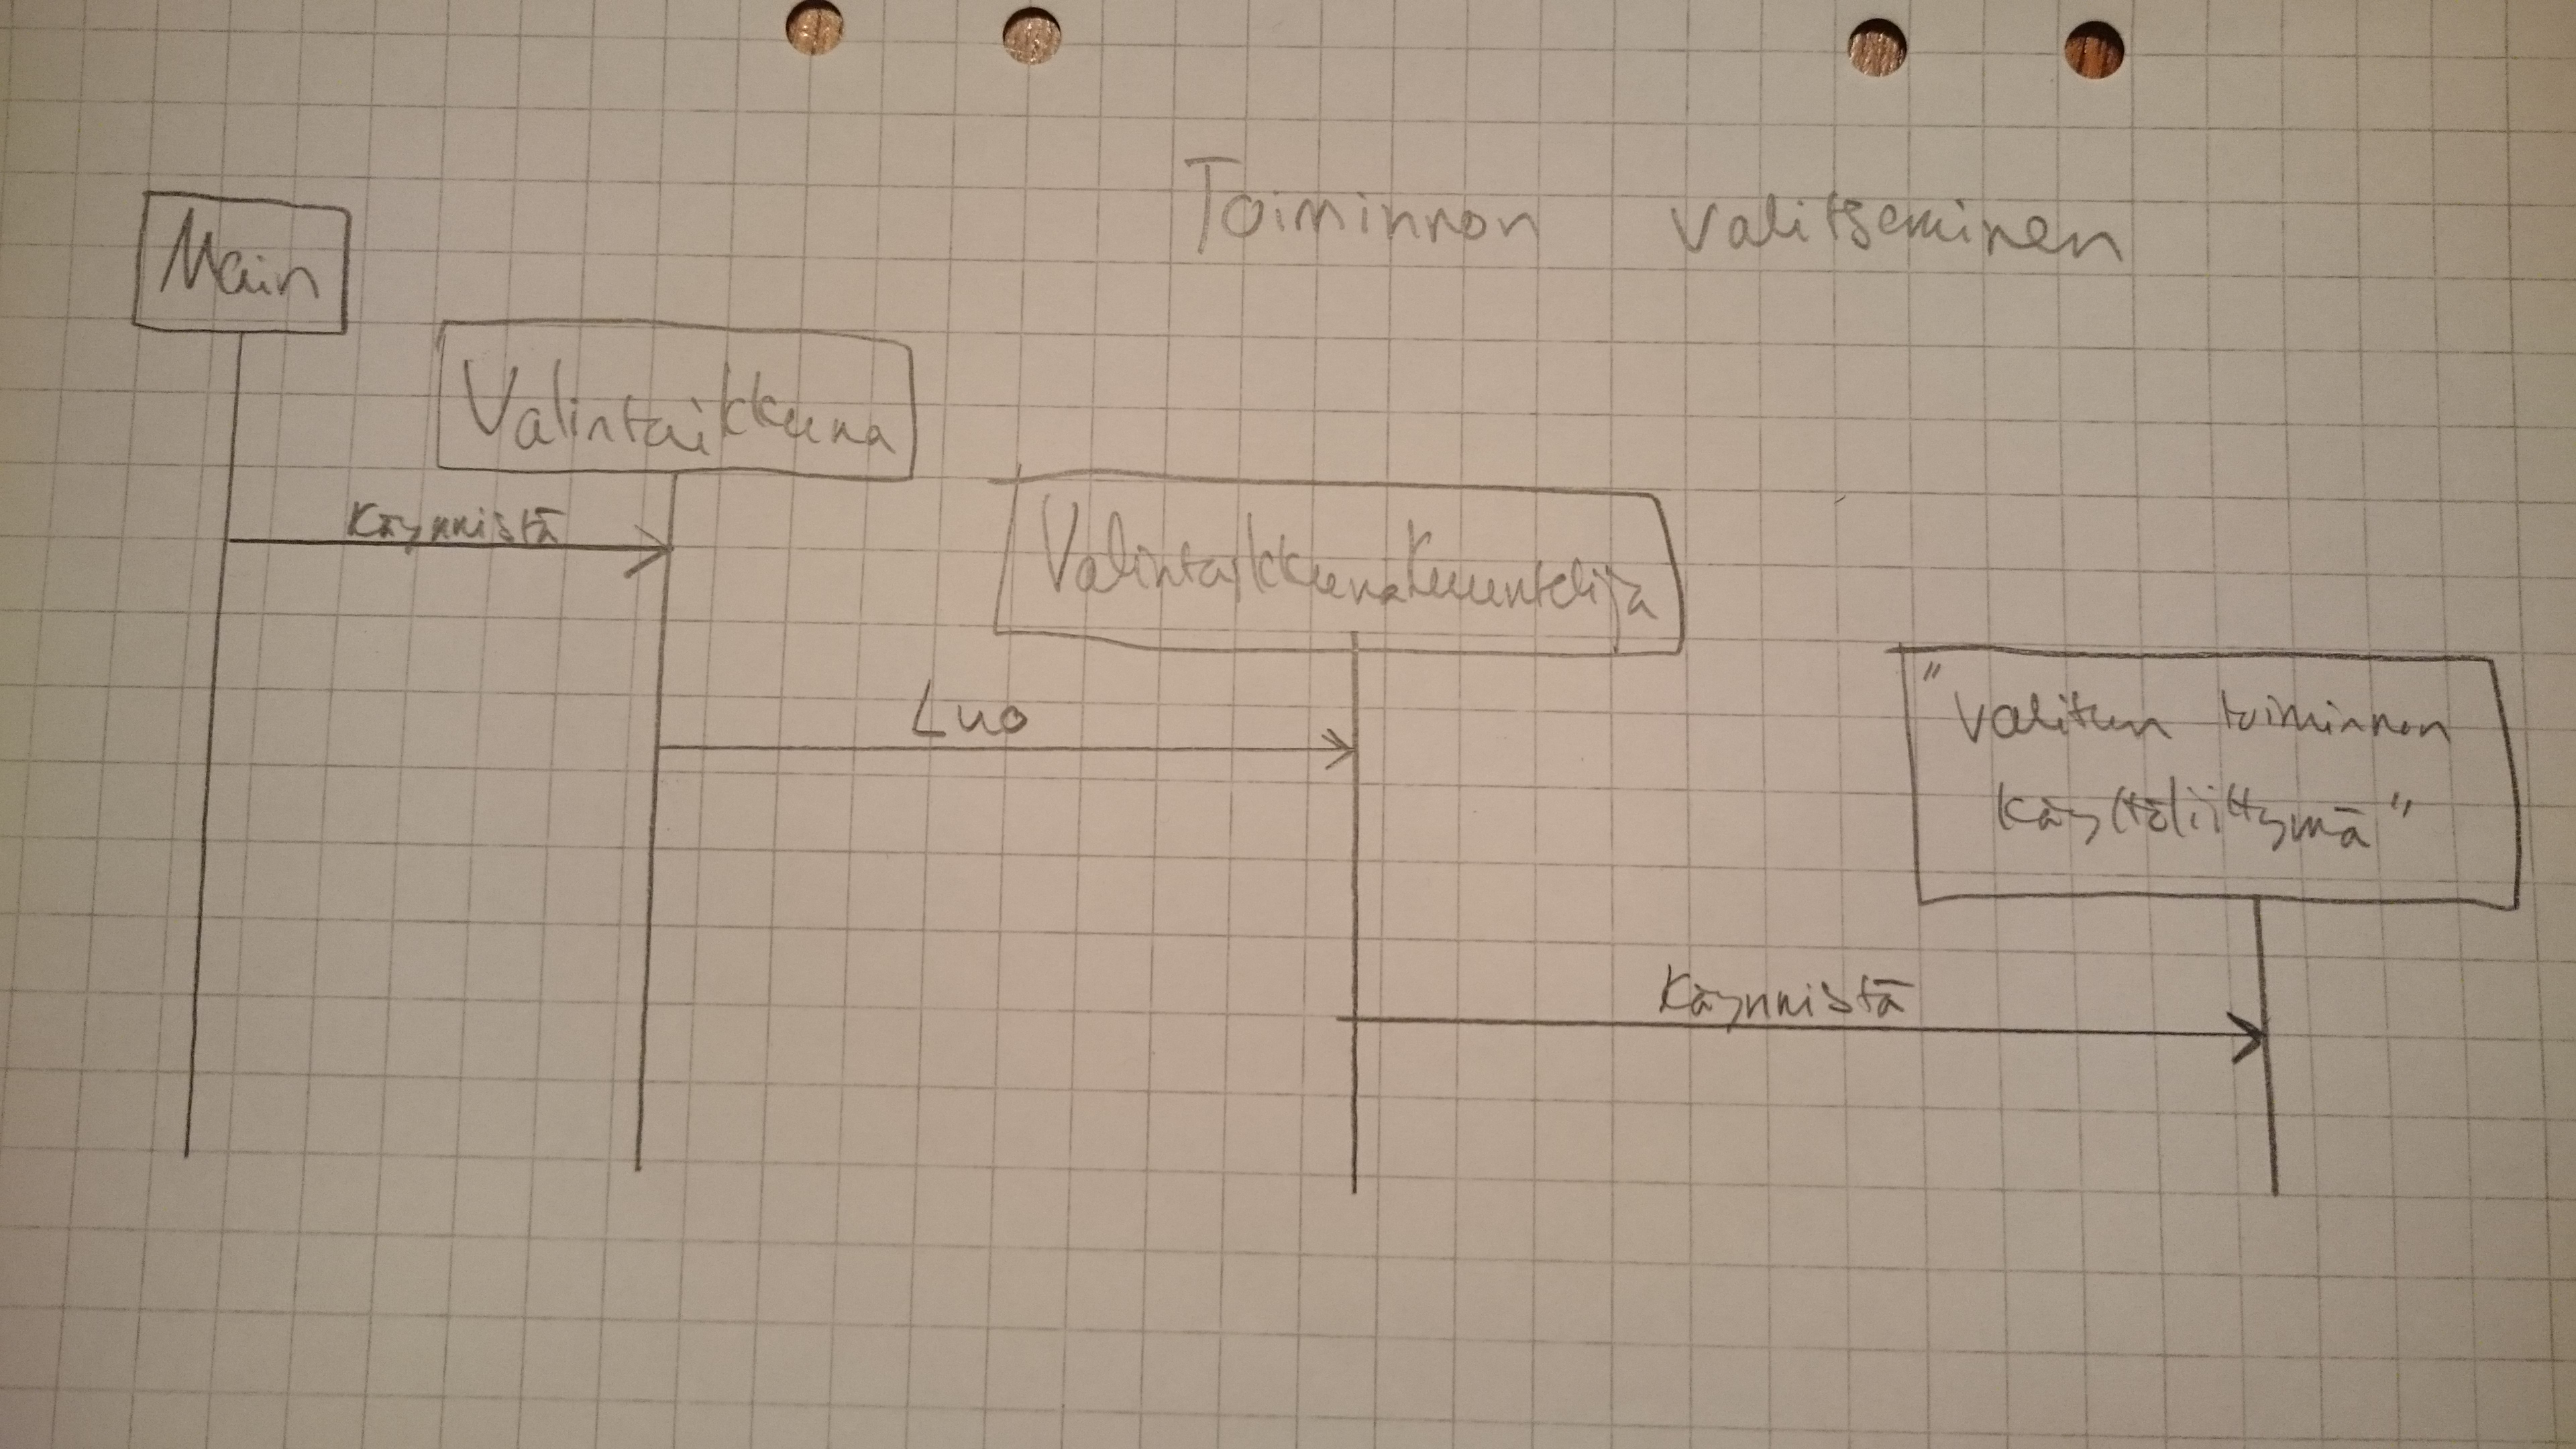 Toiminnon valitseminen
Main
Valintaikkuna
Käynnistä
Valintaikkunakuuntelija
Luo
"Valitun toiminnon
käyttöliittymä"
Käynnistä